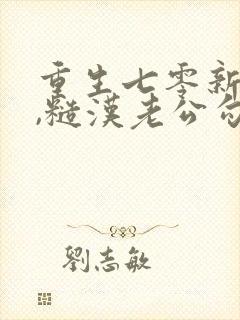 重生七零新
,糙漢老公勾
劉志敏